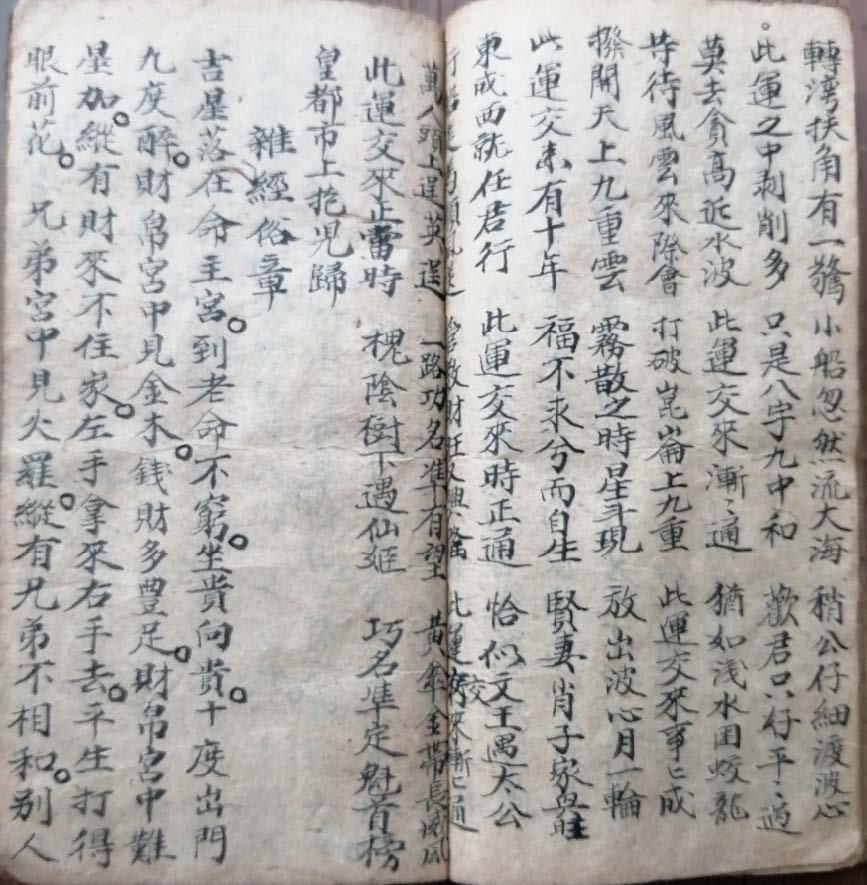 轉湾抹角有一驚 小船忽然流大海 稍公仔細渡波心
此運之中剥削多 只是八字九中和 歡君只好平〻過
莫去貪高近水波 此運交來漸〻通 猶如浅水困蛟龍
等待風雲來際會 打破崑崙上九重 此運交來事〻成
撥開天上九重雲 霧散之時星斗現 放出波心月一輪
此運交来有十年 福不求兮而自生 賢妻肖子家興旺
東成西就任君行 此運交來時正通 恰似文王遇太公
行船 順風送 財旺 興隆 此運交來漸〻通
萬人頭上逞英 一路功名準有望 黄 金帶長威風
此運交來正當時 槐陰樹下遇仙姬 巧名準定魁首榜
皇都市上抱児歸
雜經俗章
吉星落在命主宮。到老命不窮。坐貴向貴。十度出門
九度醉。財帛宮中見金木。錢財多豊足。財帛宮中難
星加。縱有財來不住家。左手拿來右手去。平生打得
眼前花。兄弟宮中見火羅。縱有兄弟不相和。别人